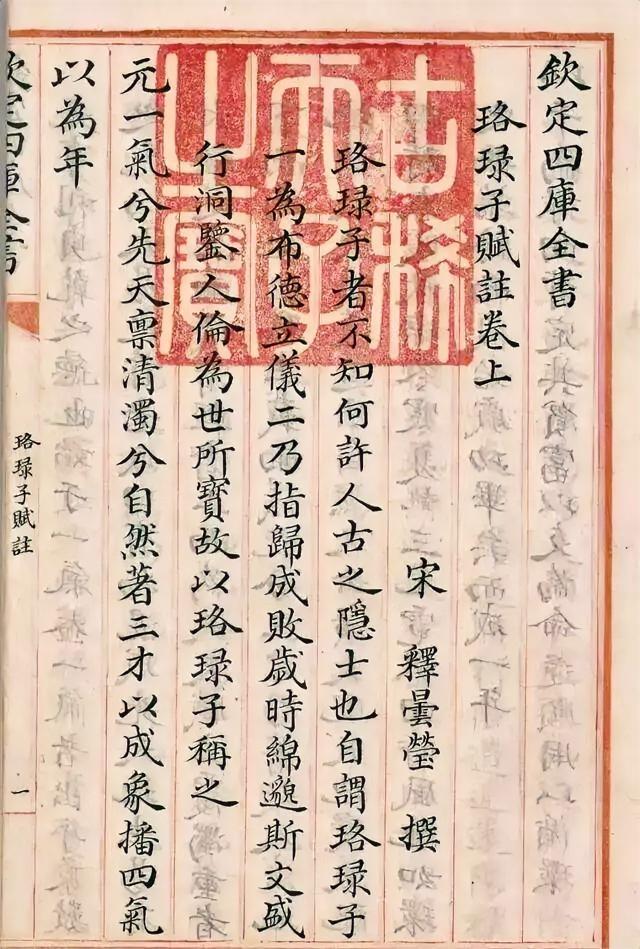 欽定四庫全書
珞琭子賦註卷上
宋 釋曇瑩 撰
珞琭子者不知何許人古之隱士也自謂珞琭子
一為布德立儀二乃指歸成敗歲時綿邈斯文盛
行洞鑒人倫為世所寶故以珞琭子稱之
元一氣兮先天禀清濁兮自然著三才以成象播四氣
以為年
欽定四庫全書
珞琭子賦註
一
古稀
天子
之寶